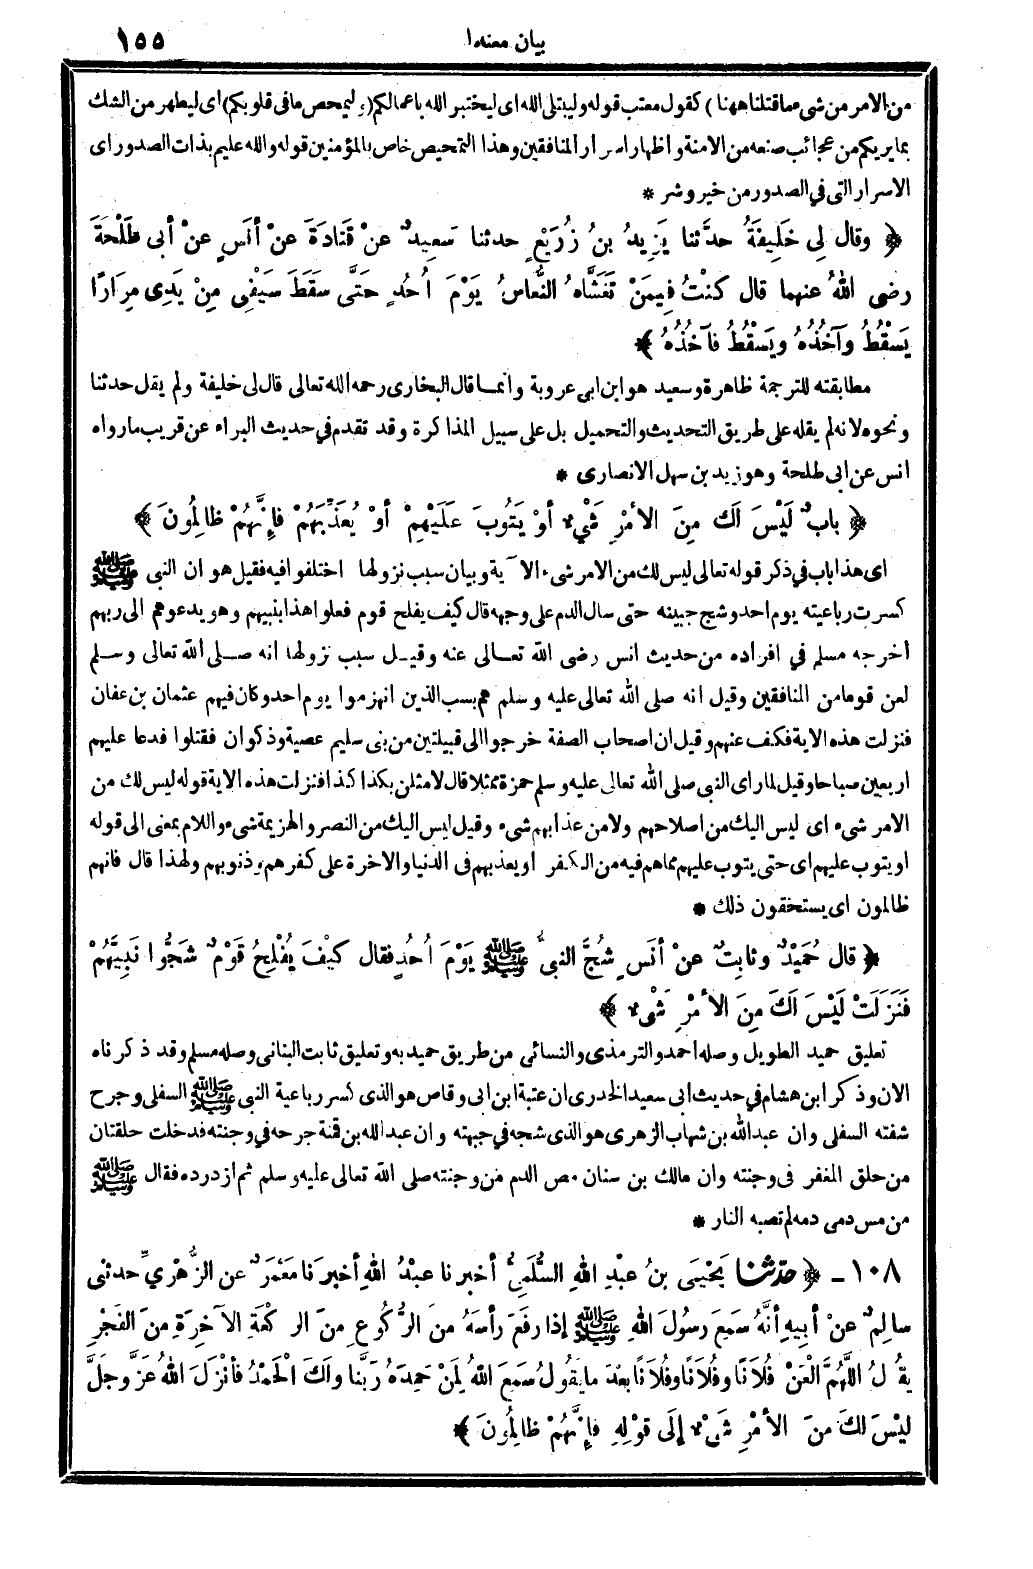 بيان معنه ا ١٥٥
من الامر من شى ما قتلنا ههنا ) كقول معتب قوله وليبتلى الله اى ليختبر الله باعمالكم (وليمحص ما فى قلوبكم) اى ليطهر من الشك
بما يريكم من عجائب صنعه من الامنة واظهار اسرار المنافقين وهذا التمحيص خاص بالمؤمنين قوله والله عليم بذات الصدور اى
الاسرار التى فى الصدور من خير وشر *
﴿ وقال لِى خَلِيفَةُ حدَّثنا يَزِيدُ بنُ زُرَيْعٍ حدثنا سَعِيدٌ عنْ قَتَادَةَ عنْ أنَسٍ عنْ أبى طَلْحَةَ
رضى اللهُ عنهما قال كنْتُ فِيمَنْ تَغَشَّاهُ النُّعاسُ يَوْمَ أُحُدٍ حَتَّى سَقَطَ سَيْفِى مِنْ يَدِى مِرَارًا
يَسْقُطُ وآخُذُهُ ويَسْقُطُ فآخُذُهُ ﴾
مطابقته للترجمة ظاهرة وسعيد هو ابن ابى عروبة وانما قال البخارى رحمه الله تعالى قال لى خليفة ولم يقل حدثنا
ونحوه لانه لم يقله على طريق التحديث والتحميل بل على سبيل المذاكرة وقد تقدم فى حديث البراء عن قريب ما رواه
انس عن ابى طلحة وهو زيد بن سهل الانصارى *
﴿ بابٌ لَيْسَ لَكَ مِنَ الأمْرِ شَيْءٌ أوْ يَتُوبَ عَلَيْهِمْ أوْ يُعَذِّبَهُمْ فإِنَّهُمْ ظالِمُونَ ﴾
اى هذا باب فى ذكر قوله تعالى ليس لك من الامر شىء الآية وبيان سبب نزولها اختلفوا فيه فقيل هو ان النبى ﷺ
كسرت رباعيته يوم احد وشج جبينه حتى سال الدم على وجهه قال كيف يفلح قوم فعلوا هذا بنبيهم وهو يدعوهم الى ربهم
أخرجه مسلم في افراده من حديث انس رضى الله تعالى عنه وقيل سبب نزولها انه صلى الله تعالى وسلم
لعن قوما من المنافقين وقيل انه صلى الله تعالى عليه وسلم هم بسب الذين انهزموا يوم احد وكان فيهم عثمان بن عفان
فنزلت هذه الاية فكف عنهم وقيل ان اصحاب الصفة خرجوا الى قبيلتين من بنى سليم عصية وذكوان فقتلوا فدعا عليهم
اربعين صباحا وقيل لما راى النبى صلى الله تعالى عليه وسلم حمزة ممثلا قال لامثلن بكذا كذا فنزلت هذه الاية قوله ليس لك من
الامر شىء اى ليس اليك من اصلاحهم ولا من عذابهم شىء وقيل ليس اليك من النصر والهزيمة شىء واللام بمعنى الى قوله
او يتوب عليهم اى حتى يتوب عليهم مما هم فيه من الكفر او يعذبهم فى الدنيا والاخرة على كفرهم وذنوبهم ولهذا قال فانهم
ظالمون اى يستحقون ذلك *
﴿ قال حُمَيْدٌ وثابِتٌ عنْ أنَسٍ شُجَّ النبىُّ ﷺ يَوْمَ أُحُدٍ فقال كَيْفَ يُفْلِحُ قَوْمٌ شَجُّوا نَبِيَّهُمْ
فَنَزَلَتْ لَيْسَ لَكَ مِنَ الأمْرِ شَىْءٌ ﴾
تعليق حميد الطويل وصله احمد والترمذى والنسائى من طريق حميد به وتعليق ثابت البنانى وصله مسلم وقد ذكرناه
الان وذكر ابن هشام في حديث ابى سعيد الخدرى ان عتبة ابن ابى وقاص هو الذى كسر رباعية النبى ﷺ السفلى وجرح
شفته السفلى وان عبدالله بن شهاب الزهرى هو الذى شجه فى جبهته وان عبد الله بن قمئة جرحه فى وجنته فدخلت حلقتان
من حلق المغفر فى وجنته وان مالك بن سنان مص الدم من وجنته صلى الله تعالى عليه وسلم ثم ازدرده فقال ﷺ
من مس دمى دمه لم تصبه النار *
١٠٨ - ﴿ حدثنا يَحْيَى بنُ عبْدِ اللهِ السُّلَمِيُّ أخبرنا عبْدُ اللهِ أخبرَنا مَعْمَرٌ عن الزُّهْرِيِّ حدثنى
سالِمٌ عنْ أبِيهِ أنَّهُ سَمِعَ رسُولَ اللهِ ﷺ إذا رفَعَ رأسَهُ منَ الرُّكُوعِ منَ الرَّكْعَةِ الآخِرَةِ منَ الفَجْرِ
يَقُولُ اللَّهُمَّ الْعَنْ فُلَانًا وفُلَانًا وفُلَانًا بعْدَ ما يَقُولُ سَمِعَ اللهُ لِمَنْ حَمِدَهُ رَبَّنا ولَكَ الْحَمْدُ فأنْزَلَ اللهُ عَزَّ وجلَّ
ليْسَ لكَ منَ الأمْرِ شَىْءٌ إلَى قوْلِهِ فإِنَّهُمْ ظالِمُونَ ﴾